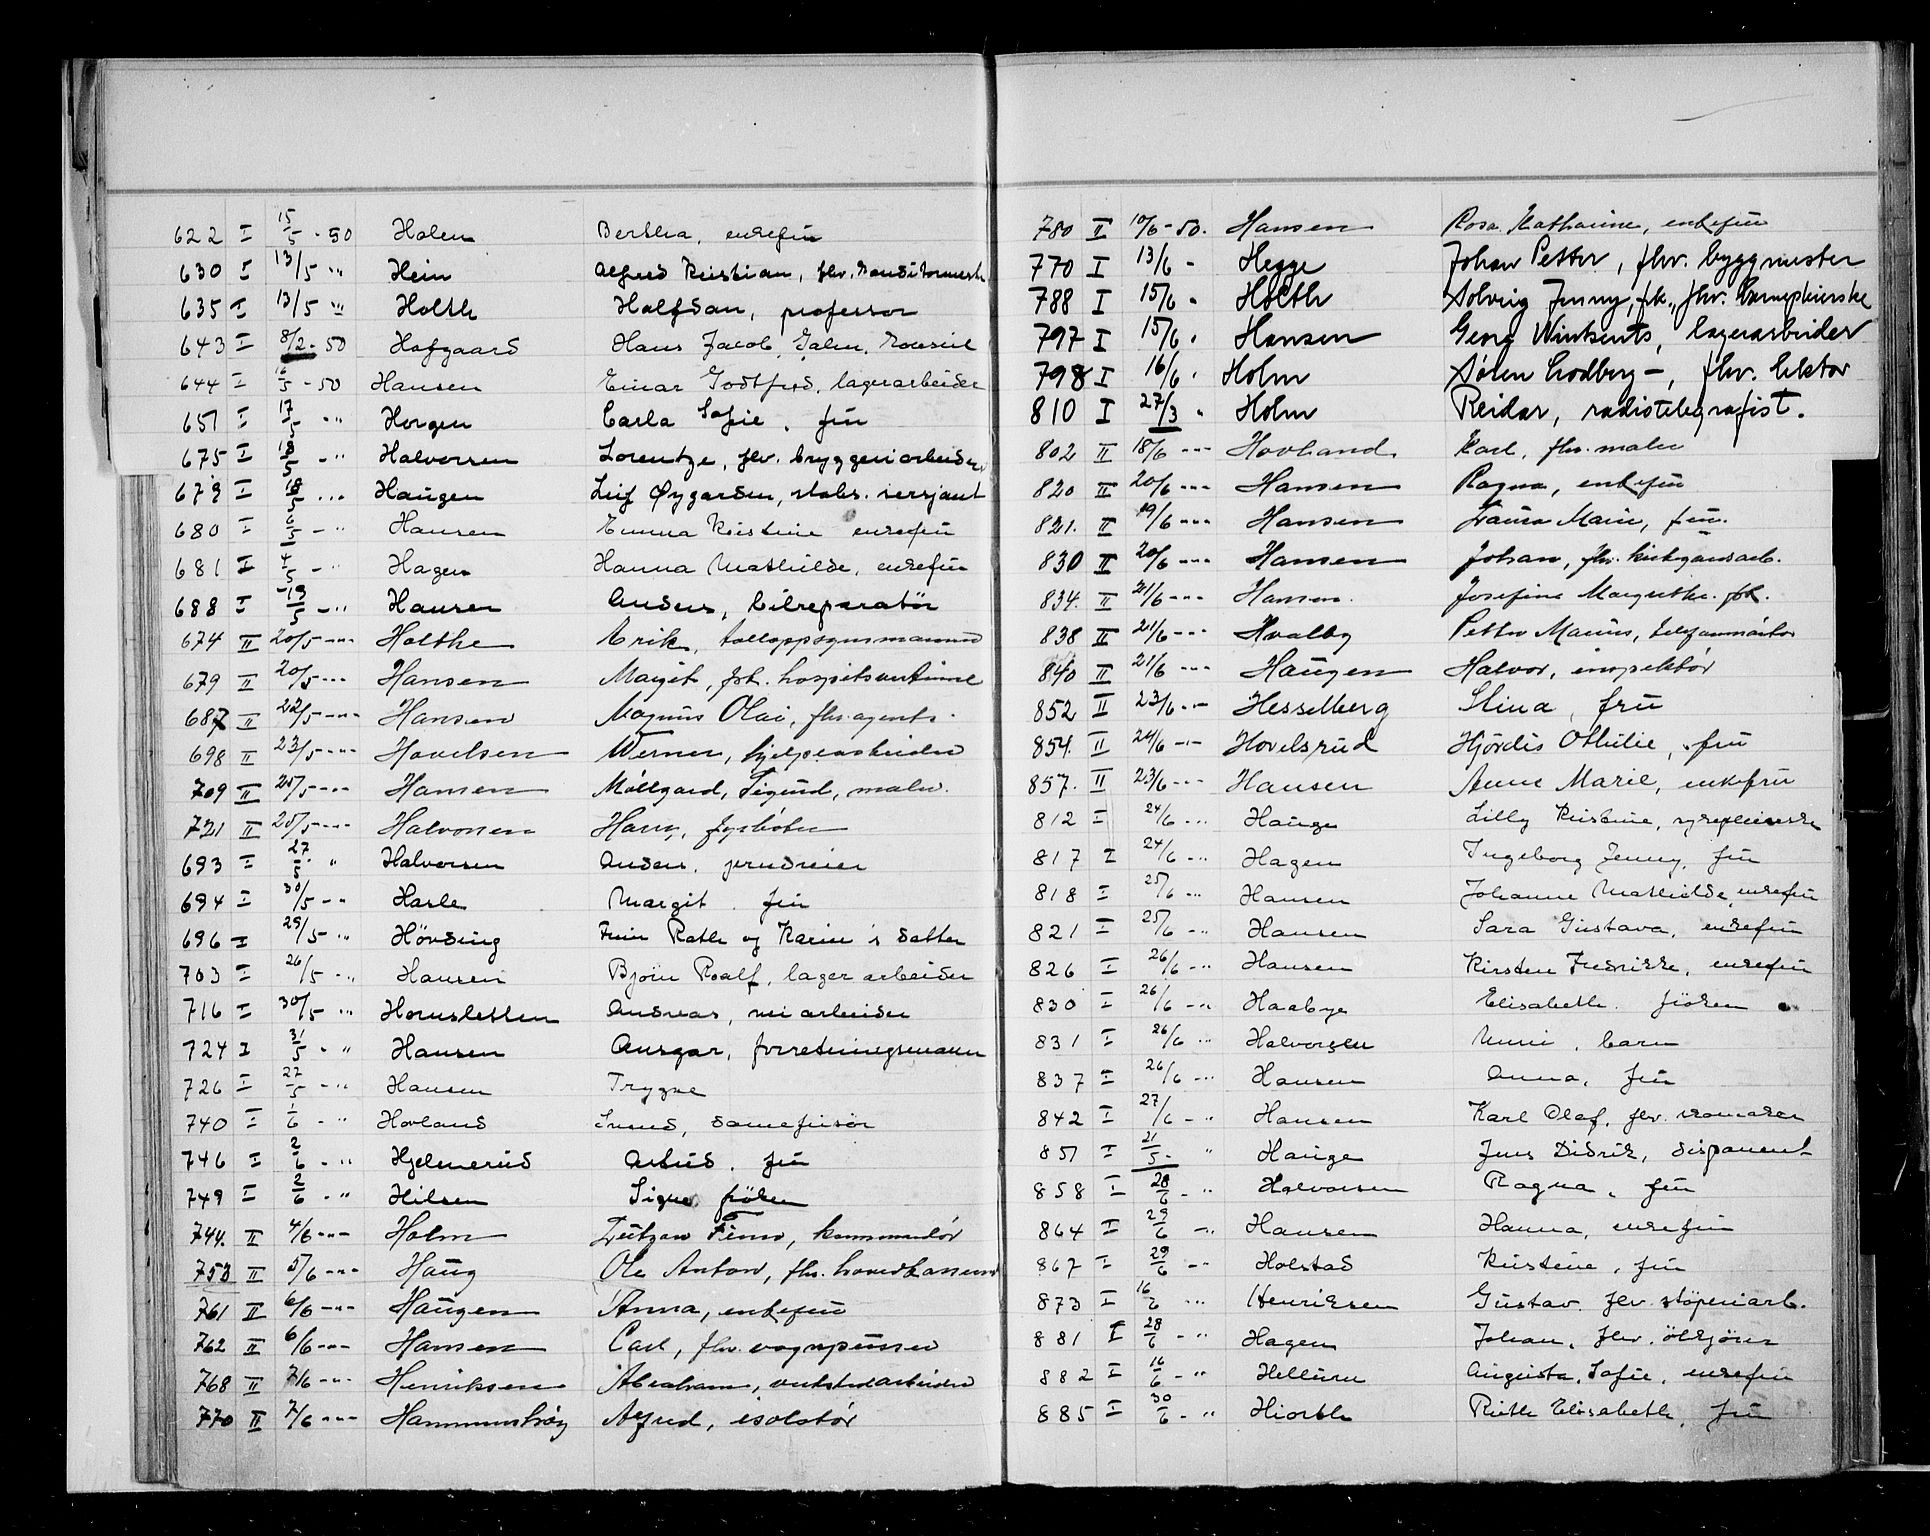 622 I 15/5 - 50 Holen Bertha, enkefru
630 I 13/5 - " Hein Alfred Kristian, fhv. konditormester
635 I 13/5 " Holth Halfdan, professor
643 I 8/2 - 50 Hofgaard Hans Jacob
644 I 16/5 - 50 Hansen Einar Godtfred, lagerarbeider
651 I 17/5 - " Horgen Carla Sofie, fru
675 I 18/5 - " Halvorsen Lorentze, fhv. bryggeriarbeider
679 I 18/5 - " Haugen Leif Øygarden, stabs. sersjant
680 I 16/5 - " Hansen Emma Kristine enkefru
681 I 4/5 - " Hagen Hanna Mathilde, enkefru
688 I 19/5 - " Hansen Anders, bilreparatør
674 II 20/5 - " Holthe Erik,
679 II 20/5 - " Hansen Margit, frk.
687 II 22/5 - " Hansen Magnus Olai, fhv. agent.
698 II 23/5 - " Hovelsen Werner, hjelpearbeider
709 II 25/5 - " Hansen Møllgard, Sigurd, maler.
721 II 25/5 - " Halvorsen Harry, fyrbøter
693 I 27/5 " Halvorsen Anders, jerndreier
694 I 30/5 - " Harle Margit. fru
696 I 29/5 - " Høvding Finn Rath og Karin's datter
703 I 26/5 - " Hansen Bjørn Roalf, lagerarbeider
716 I 30/5 - " Hornsletten Andreas, veiarbeider
724 I 31/5 - " Hansen Ansgar, forretningsmann
726 I 27/5 - " Hansen Trygve
740 I 1/6 - " Hovland Svend, damefrisør
746 I 2/6 - " Hjelmerud Astrid. fru
749 I 2/6 - " Hilsen Signe frøken
744. II 4/6 - " Holm Lützow Finn,
753 II 5/6 - " Haug Ole Anton, fhv. hovedkasserer
761 II 6/6 - " Haugen Anna, enkefru
762 II 6/6 - " Hansen Carl, fhv. vognpusser
768 II 7/6 - " Henriksen Abraham, verkstedarbeider
770 II 7/6 - " Hammershøy Alfred, isolatør
780 II 10/6 - 50. Hansen Rosa Katharine, enkefru
770 I 13/6 - Hegge Johan Petter, fhv. byggmester
788 I 15/6 " Holth Solveig Jenny, frk., fhv.
797 I 15/6 " Hansen Georg Winkents, lagerarbeider
798 I 16/6 " Holm Søren Lodberg -, fhv. lektor
810 I 27/3 " Holm Reidar, radiotelegrafist.
802 II 18/6 - " Hovland Karl, fhv. maler
820 II 20/6 - " Hansen Ragna, enkefru
821. II 19/6 - " Hansen Laura Marie, fru.
830 II 20/6 - " Hansen Johan, fhv.
834. II 21/6 - " Hansen. Josefine Margrethe. frk.
838 II 21/6 - " Hvalby Petter Marius, telefonmontør
840 II 21/6 - " Haugen Halvor, inspektør
852 II 23/6 - " Hesselberg Stina, fru
854. II 24/6 - " Hovelsrud Hjørdis Othilie, fru
857. II 23/6 - " Hansen Anne Marie, enkefru
812 I 24/6 - " Hauge Lilly Kristine, sykepleierske
817 I 24/6 - " Hagen Ingeborg Jenny, fru
818 I 25/6 - " Hansen Johanne Mathilde, enkefru
821 I 25/6 - " Hansen Sara Gustava, enkefru
826 I 26/6 - " Hansen Kirsten Fredrikke, enkefru
830 I 26/6 - " Haabye Elisabeth. frøken
831 I 26/6 - " Halvorsen Unni, barn
837 I 26/6 - " Hansen Anna, fru
842 I 27/6 - " Hansen Karl Olaf, fhv. skomaker
851 I 21/5 - " Hauge Jens Didrik, disponent
858 I 28/6 - " Halvorsen Ragna, fru
864 I 29/6 - " Hansen Hanna, enkefru
867 I 29/6 - " Holstad Kristine, fru
873 I 16/6 " Henriksen Gustav. fhv. støperiarb.
881 I 28/6 - " Hagen Johan, fhv. ølkjører
882 I 16/6 - " Hellum Augusta, Sofie, enkefru
885 I 30/6 - " Hiorth Ruth Elisabeth, fru